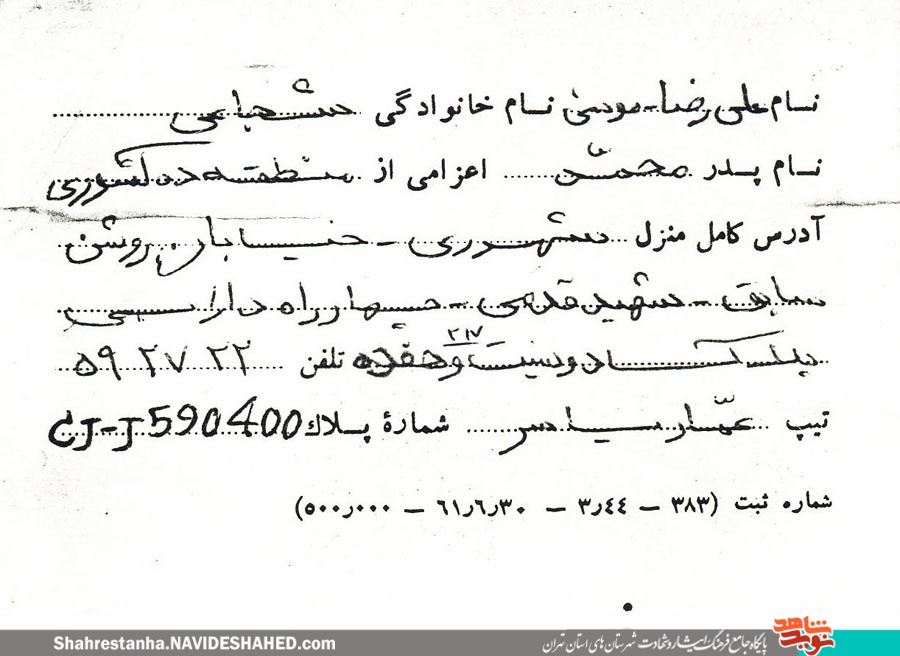 نام علی رضا - موسی نام خانوادگی شعباعی
نام پدر محمّد اعزامی از منطقه ده کشوری
آدرس کامل منزل سهروردی - خیابان روشن
سابق - شهید قدمی - چهارراه دارائی
پلاک دویست و هفده ۲۱۷ تلفن ۵۹ ۲۷ ۲۲
تیپ عمّار یاسر شمارهٔ پلاك CJ-J590400
شماره ثبت (۳۸۳ – ۳٫٤٤ – ٦۱٫٦٫۳۰ – ۵۰۰٫۰۰۰)
Shahrestanha.NAVIDESHAHED.com
پایگاه جامع فرهنگ ایثار و شهادت شهرستان های استان تهران
نوید شاهد